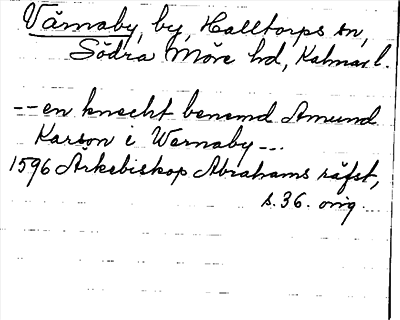 Värnaby, by, Halltorps sn,
Södra Möre hd, Kalmar l.
-- en knecht benemd Amund
Karson i Wernaby ---
1596 Ärkebiskop Abrahams räfst,
s. 36. orig.